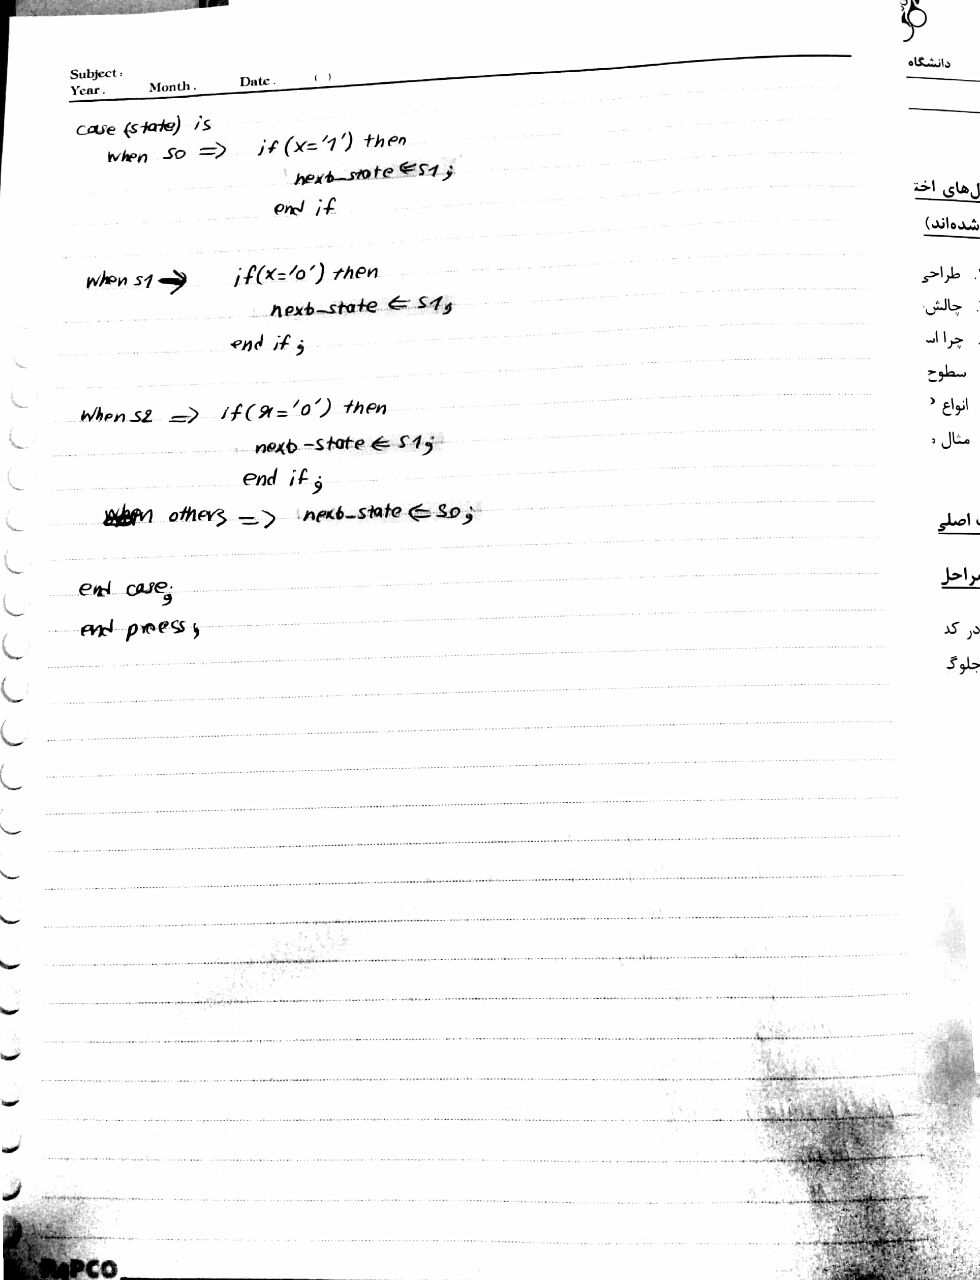 Subject:
Year. Month. Date. ( )
case (state) is
when s0 => if (x='1') then
next_state <= s1;
end if
when s1 => if(x='0') then
next_state <= s1;
end if;
when s2 => if(x='0') then
next-state <= s1;
end if;
when others => next_state <= s0;
end case;
end process;
PAPCO
دانشگاه
ل‌های اخت
شده‌اند)
طراحی
چالش
چرا
سطوح
انواع
مثال
اصلی
مراحل
در کد
جلوگ